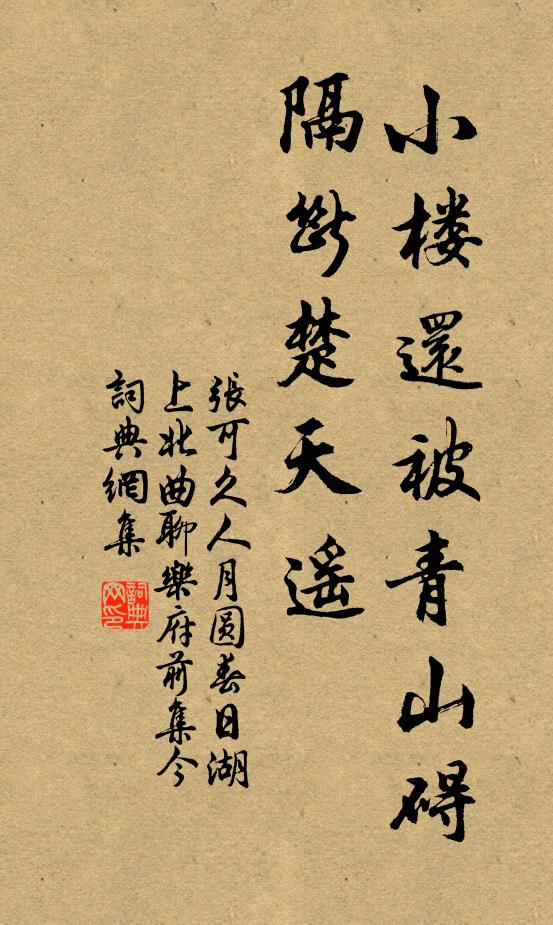 小楼還被青山碍
隔斷楚天遥
張可久人月圆春日湖
上北曲聊樂府前集今
詞典網集
詞典网印